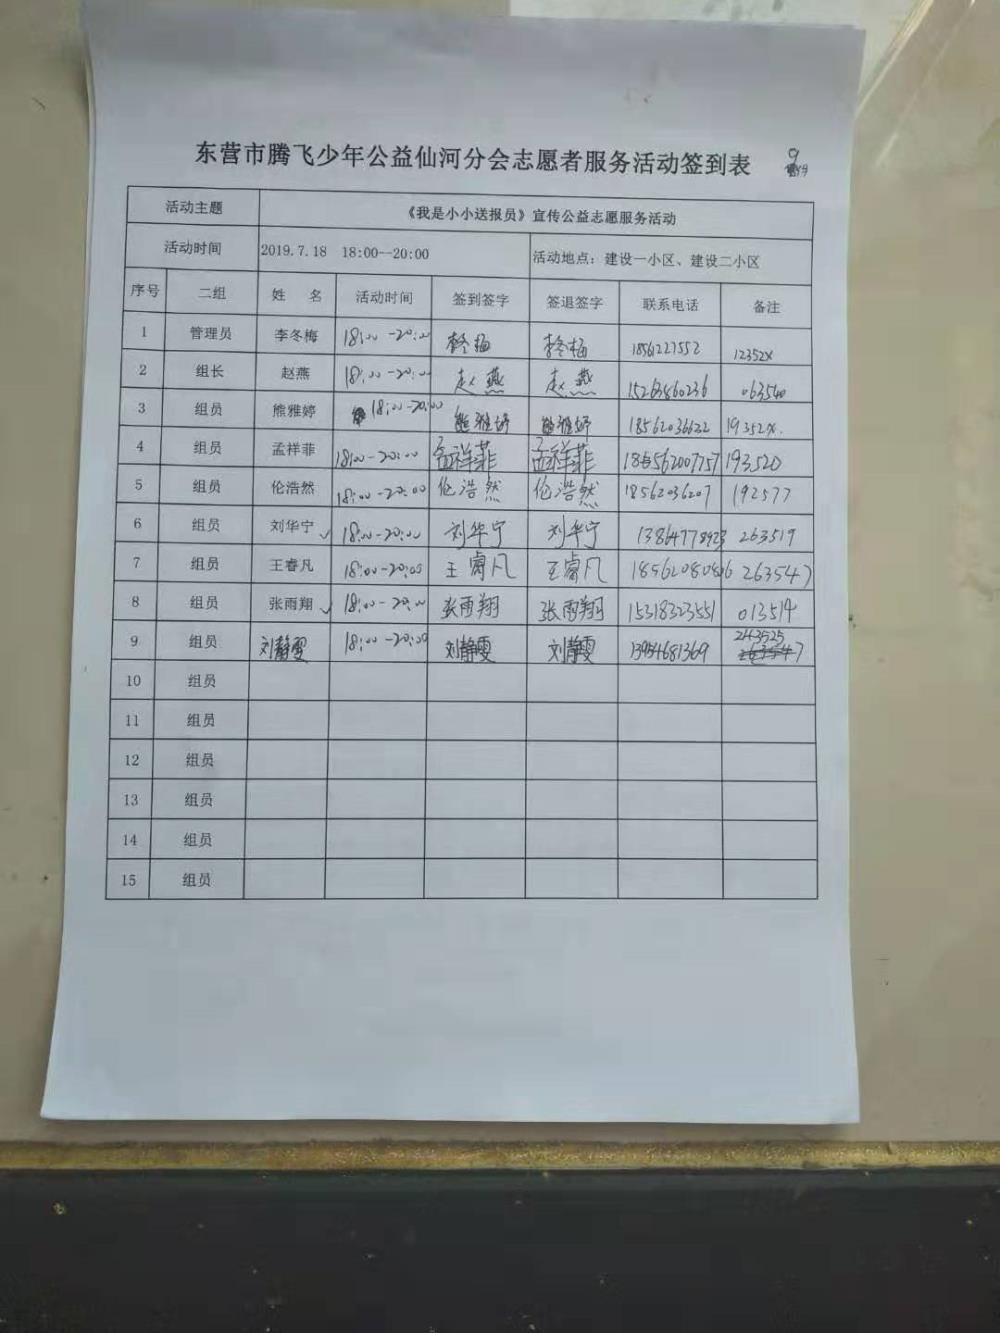 东营市腾飞少年公益仙河分会志愿者服务活动签到表 9
活动主题 《我是小小送报员》宣传公益志愿服务活动
活动时间 2019.7.18 18:00--20:00 活动地点：建设一小区、建设二小区
序号 二组 姓 名 活动时间 签到签字 签退签字 联系电话 备注
1 管理员 李冬梅 18:00-20:00 李冬梅 李冬梅 18561227552 12352X
2 组长 赵燕 18:00-20:00 赵燕 赵燕 15263860236 063540
3 组员 熊雅婷 18:00-20:00 熊雅婷 熊雅婷 18562036622 19352X.
4 组员 孟祥菲 18:00-20:00 孟祥菲 孟祥菲 193520
5 组员 伦浩然 18:00-20:00 伦浩然 伦浩然 18562036207 192577
6 组员 刘华宁 18:00-20:00 刘华宁 刘华宁 263519
7 组员 王睿凡 18:00-20:00 王睿凡 王睿凡 263547
8 组员 张雨翔 18:00-20:00 张雨翔 张雨翔 15318323551 013514
9 组员 刘静雯 18:00-20:00 刘静雯 刘静雯 13954681369 243525
10 组员
11 组员
12 组员
13 组员
14 组员
15 组员